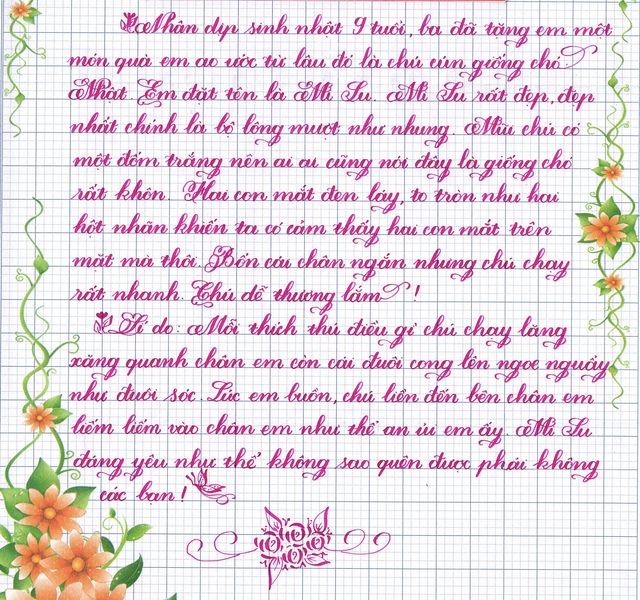 Nhân dịp sinh nhật 9 tuổi, ba đã tặng em một
món quà em ao ước từ lâu đó là chú cún giống chó
Nhật. Em đặt tên là Mi Su. Mi Su rất đẹp, đẹp
nhất chính là bộ lông mượt như nhung. Mũi chú có
một đốm trắng nên ai ai cũng nói đây là giống chó
rất khôn. Hai con mắt đen láy, to tròn như hai
hột nhãn khiến ta có cảm thấy hai con mắt trên
mặt mà thôi. Bốn cái chân ngắn nhưng chú chạy
rất nhanh. Chú dễ thương lắm !
Lí do : Mỗi thích thú điều gì chú chạy lăng
xăng quanh chân em còn cái đuôi cong lên ngoe nguẩy
như đuôi sóc. Lúc em buồn, chú liền đến bên chân em
liếm liếm vào chân em như thể an ủi em ấy. Mi Su
đáng yêu như thế không sao quên được phải không
các bạn !